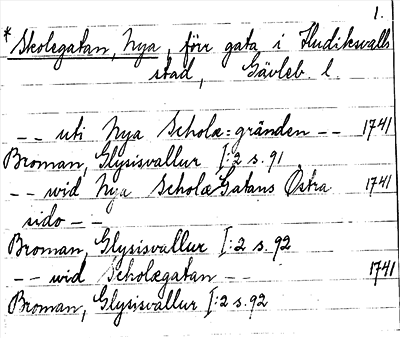 1.
* Skolegatan, Nya, förr gata i Hudiksvalls
stad, Gävleb. l.
-- uti Nya Scholæ=gränden -- 1741
Broman, Glysisvallur I:2 s. 91
-- wid Nya Scholæ Gatans Östra 1741
sido --
Broman, Glysisvallur I:2 s. 92
-- wid Scholægatan -- 1741
Broman, Glysisvallur I:2 s. 92